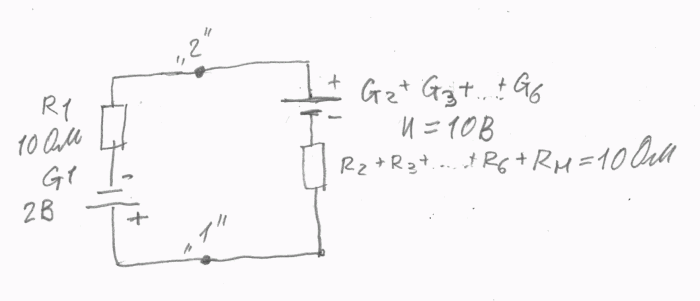 „2"
+
G2+ G3+...+G6
-
И = 10В
R1
10 Ом
R2+R3+.....+R6+RН=10 Ом
G1
-
2В
+
„1"